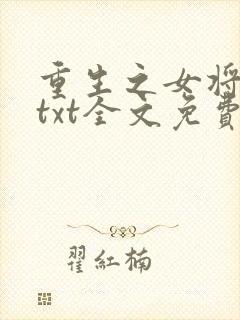 重生之女将
txt全文免費
翟紅楠